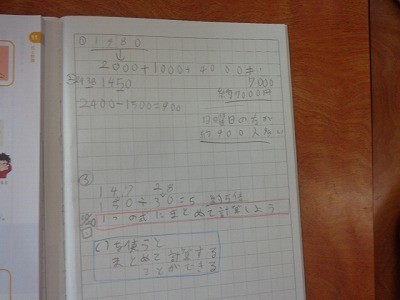 1480
2000+1000+4000=
7000
約7000円
1450
2400-1500=900
日曜日の方が
約900人多い
③
147 28
150÷30=5 約5倍
1つの式にまとめて計算しよう
( )を使うと
まとめて計算する
ことができる